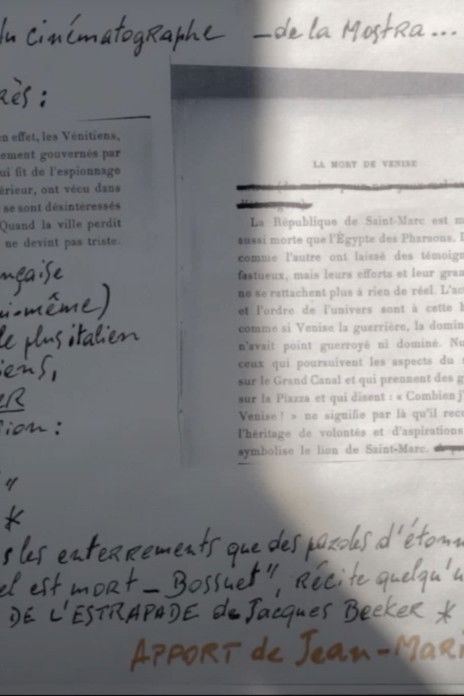 du cinématographe – de la Mostra...
rès :
en effet, les Vénitiens,
ement gouvernés par
ui fit de l'espionnage
érieur, ont vécu dans
se sont désintéressés
Quand la ville perdit
ne devint pas triste.
nçaise
ni-même)
le plus italien
iens,
ER
sion :
"
*
LA MORT DE VENISE
La République de Saint-Marc est m
aussi morte que l'Égypte des Pharaons. 
comme l'autre ont laissé des témoign
fastueux, mais leurs efforts et leur gran
ne se rattachent plus à rien de réel. L'ac
et l'ordre de l'univers sont à cette h
comme si Venise la guerrière, la domin
n'avait point guerroyé ni dominé. Nu
ceux qui poursuivent les aspects du
sur le Grand Canal et qui prennent des g
sur la Piazza et qui disent : « Combien j'
Venise ! » ne signifie par là qu'il reco
l'héritage de volontés et d'aspirations
symbolise le lion de Saint-Marc.
s les enterrements que des paroles d'étonn
el est mort – Bossuet", récite quelqu'u
DE L'ESTRAPADE de Jacques Becker *
APPORT de Jean-Mari